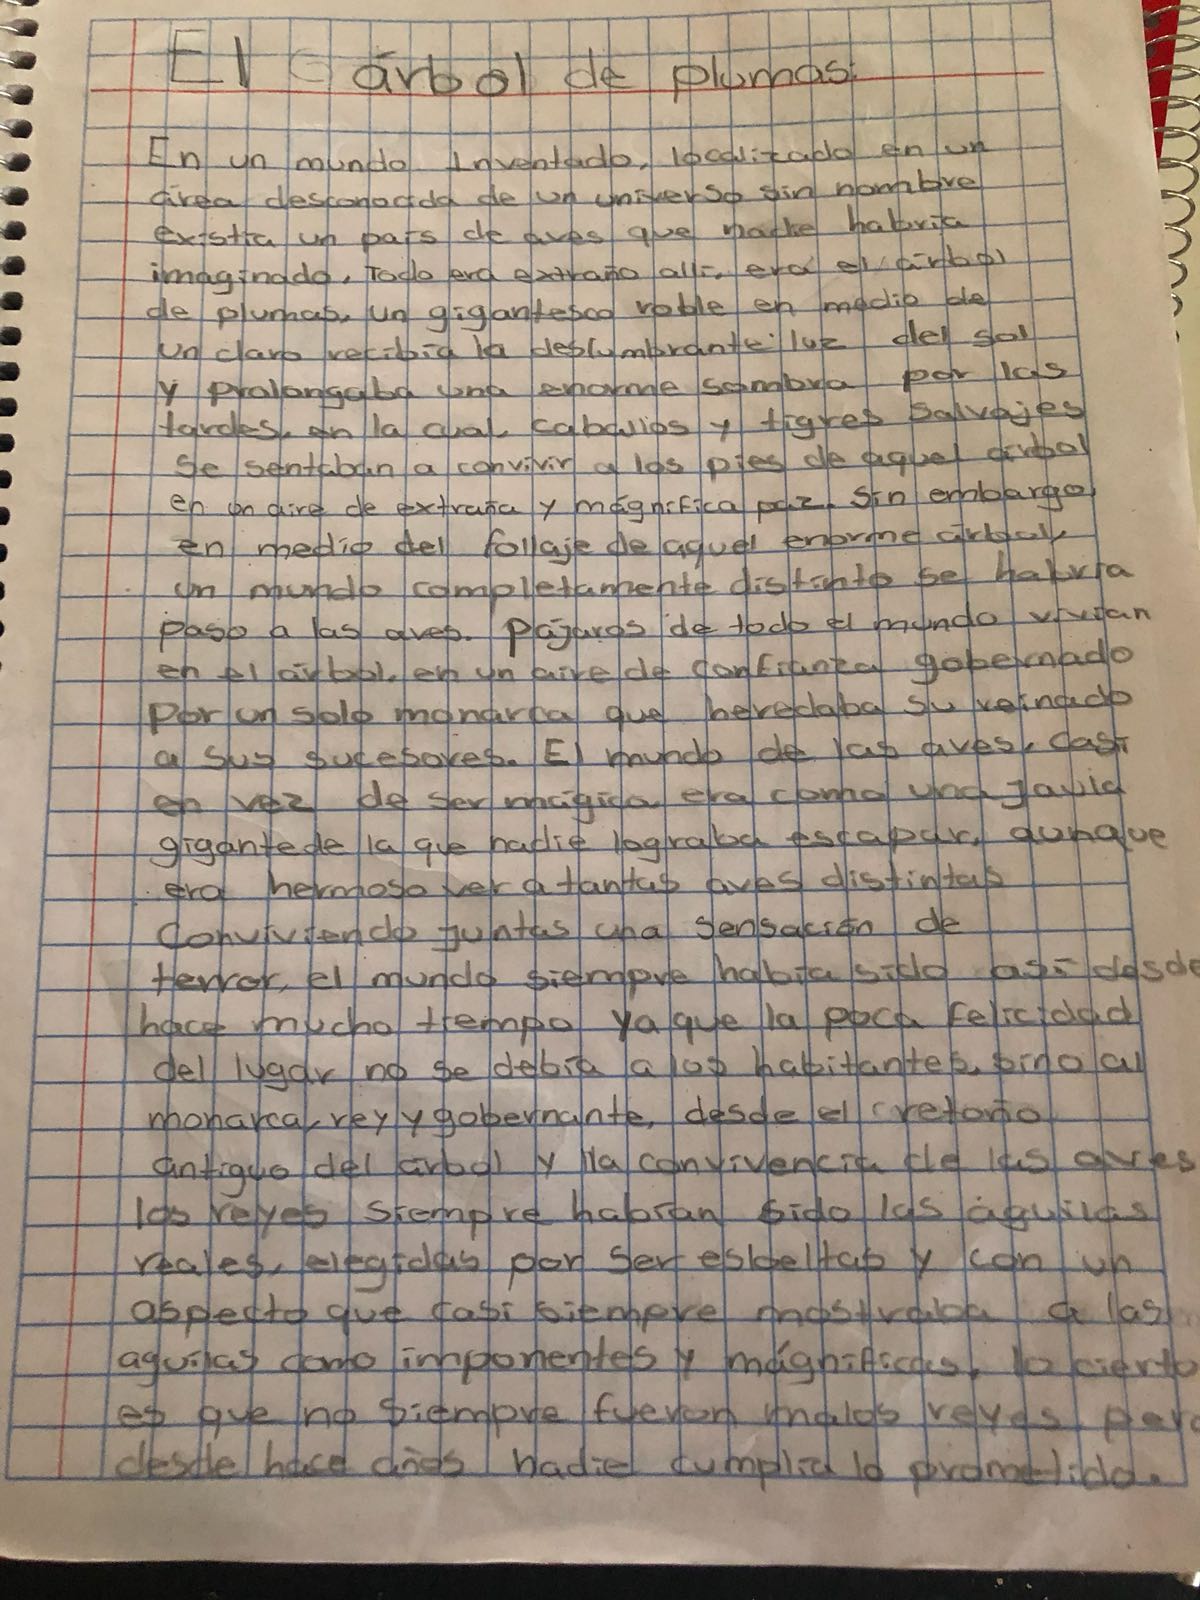 El árbol de plumas.
En un mundo Inventado, localizado en un
área desconocida de un universo sin nombre
existia un pais de aves que nadie habria
imaginado. Todo era extraño alli, era el árbol
de plumas, un gigantesco roble en medio de
un claro recibia la deslumbrante luz del sol
y prolongaba una enorme sombra por las
tardes, en la cual caballos y tigres salvajes
se sentaban a convivir a los pies de aquel árbol
en un aire de extraña y mágnifica paz. Sin embargo,
en medio del follaje de aquel enorme árbol,
un mundo completamente distinto se habria
paso a las aves. Pájaros de todo el mundo vivian
en el árbol, en un aire de confianza gobernado
por un solo monarca que heredaba su reinado
a sus sucesores. El mundo de las aves, casi
en vez de ser mágica era como una jaula
gigante de la que nadie lograba escapar, aunque
era hermoso ver a tantas aves distintas
Conviviendo juntas una sensación de
terror, el mundo siempre habia sido asi desde
hace mucho tiempo ya que la poca felicidad
del lugar no se debia a los habitantes, sino al
monarca, rey y gobernante, desde el retoño
antiguo del árbol y la convivencia de las aves
los reyes siempre habian sido las águilas
reales, elegidas por ser esbeltas y con un
aspecto que casi siempre mostraba a las
aguilas como imponentes y mágnificas, lo cierto
es que no siempre fueron malos reyes, pero
desde hace años nadie cumplia lo prometido.